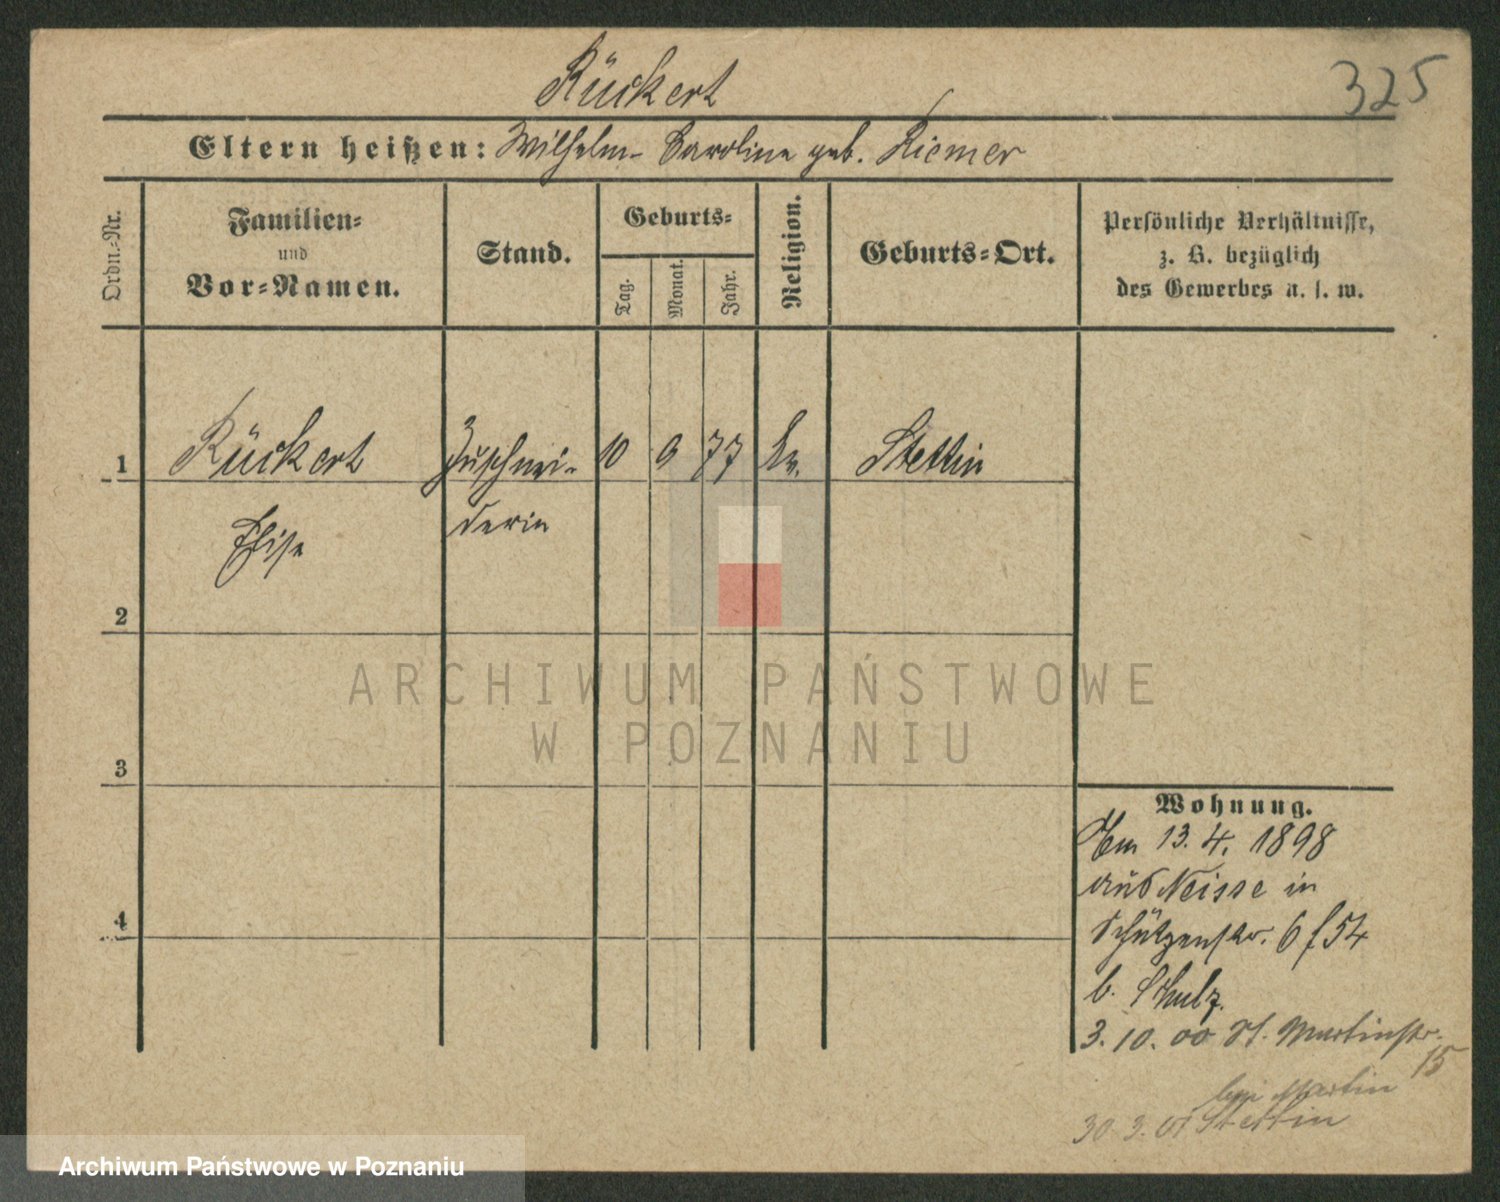 Rückert
325
Eltern heißen: Wilhelm - Caroline geb. Riemer
Ordn.-Nr.
Familien-
und
Vor-Namen.
Stand.
Geburts-
Tag.
Monat.
Jahr.
Religion.
Geburts-Ort.
Persönliche Verhältnisse,
z. B. bezüglich
des Gewerbes u. s. w.
1 Rückert Zuschnei- 10 9 77 Ev. Stettin
Elise derin
2
3
4
Wohnung.
Am 13. 4. 1898
aus Neisse in
Schützenstr. 6 f 54
b. Schulz.
3. 10. 00 St. Martinstr.
15
bei Martin
30. 3. 01 Stettin
ARCHIWUM PAŃSTWOWE
W POZNANIU
Archiwum Państwowe w Poznaniu